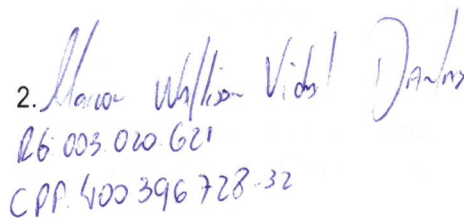 2. Maicon Wallison Vidal Dantas
RG 003.020.621
CPF. 400 396 728-32